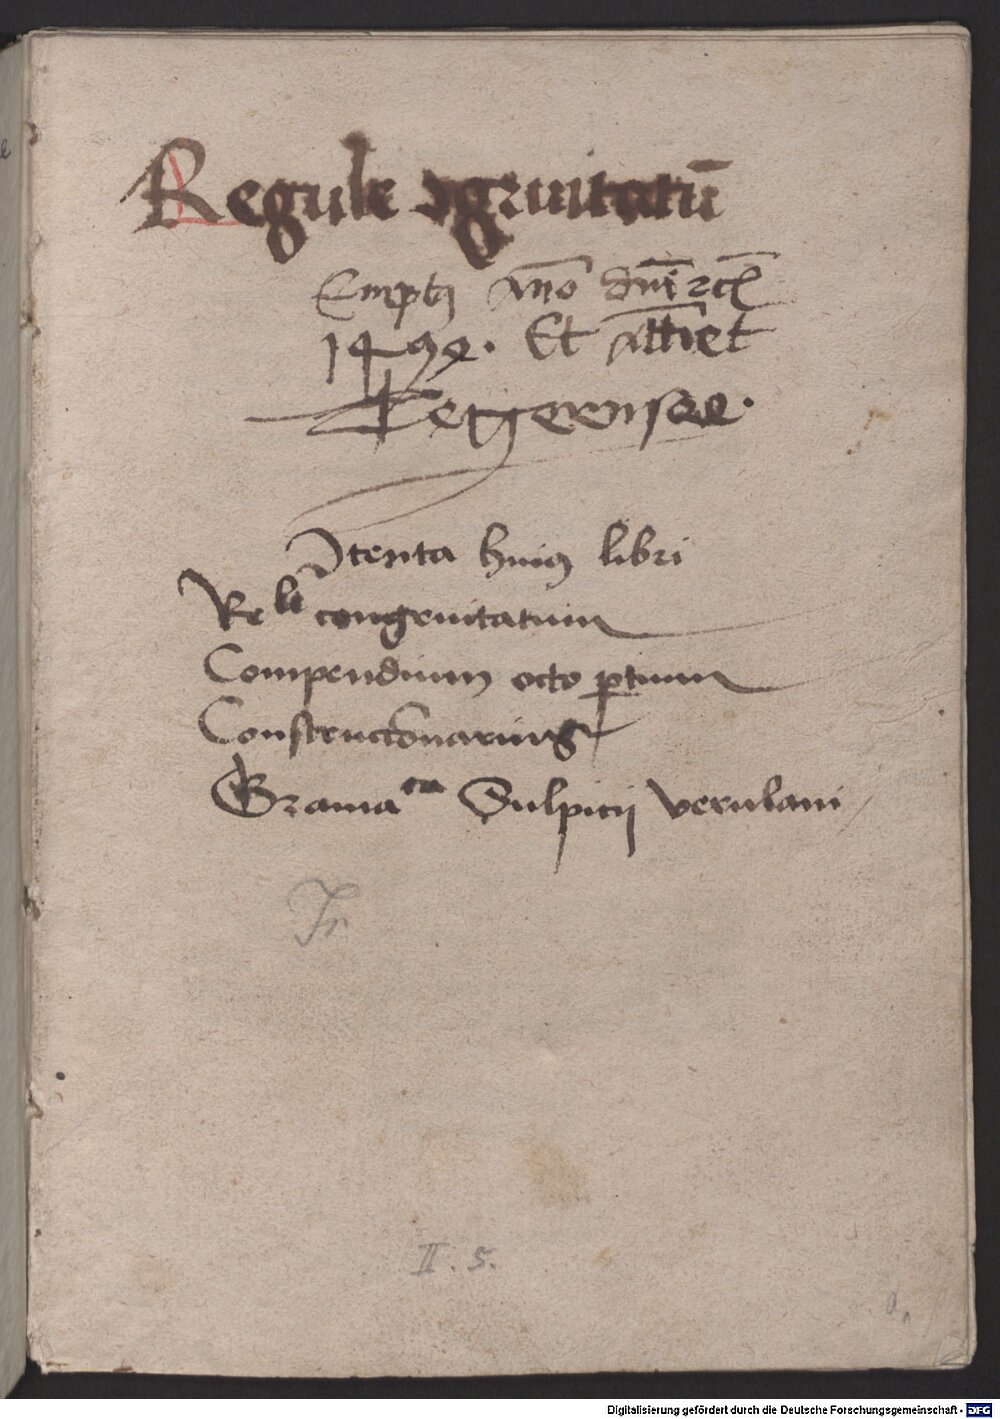 Regule ↄgruitatū
Emptꝰ Año dñi ꝛcͭ
1492. Et Attīet
Tegernsee.
Ↄtenta huiꝰ libri
Reˡᵉ congruitatum
Compendium octo ꝑtium
Constructionarius
Gramaᶜᵃ Sulpicij verulani
Fr
II. 5.
Digitalisierung gefördert durch die Deutsche Forschungsgemeinschaft - DFG